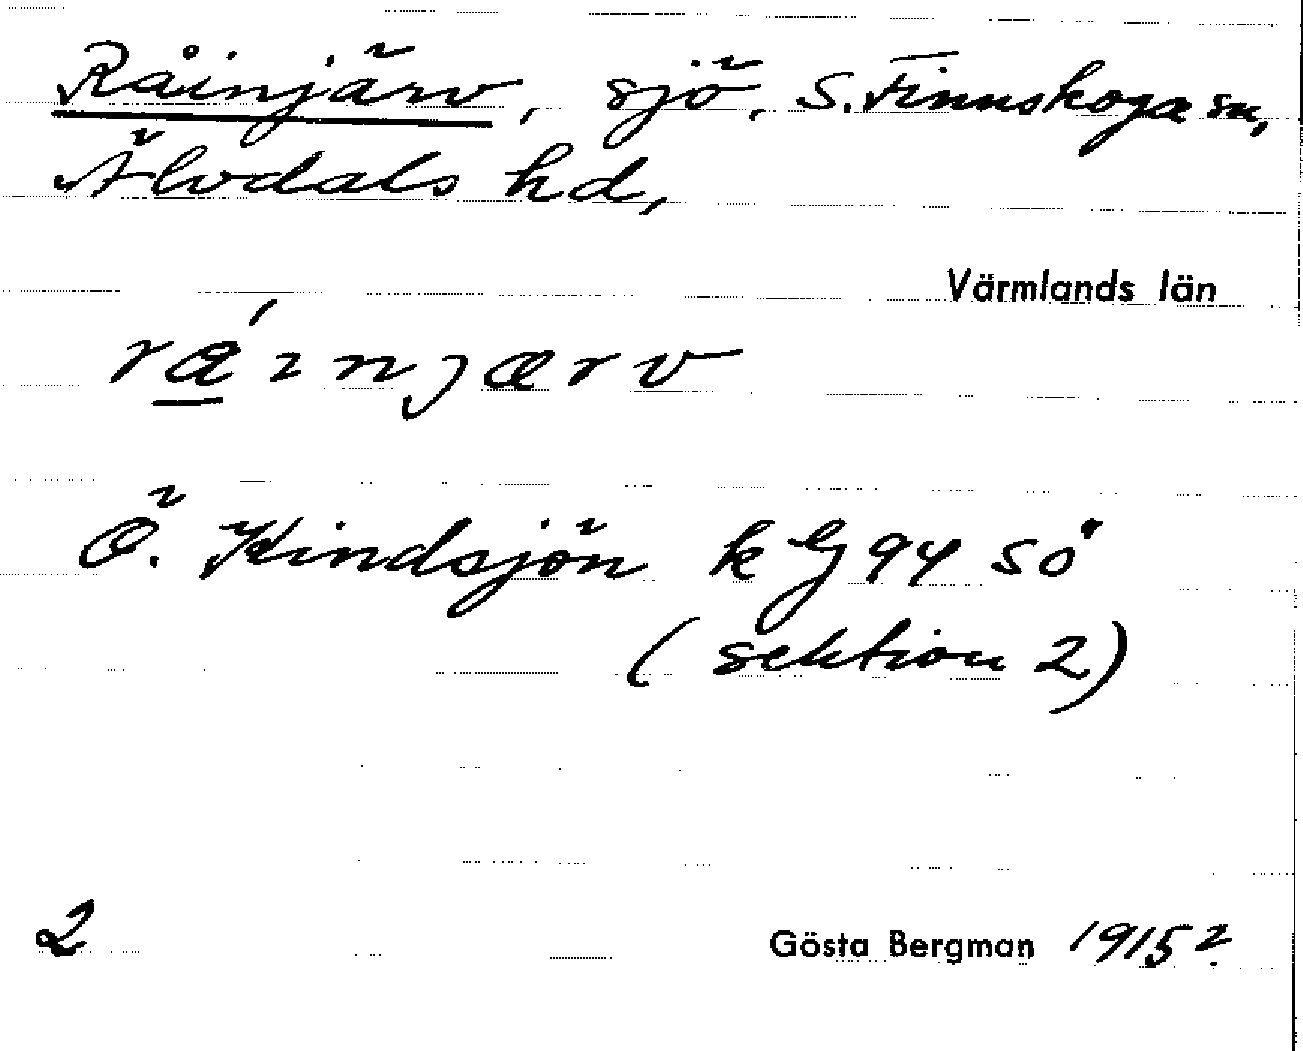 Råinjärv, sjö, S. Finnskoga sn,
Älvdals hd,
Värmlands län
rá̱ɪnjærv
Ö. Kindsjön k G 94 sö
(sektion 2)
2
Gösta Bergman 1915?